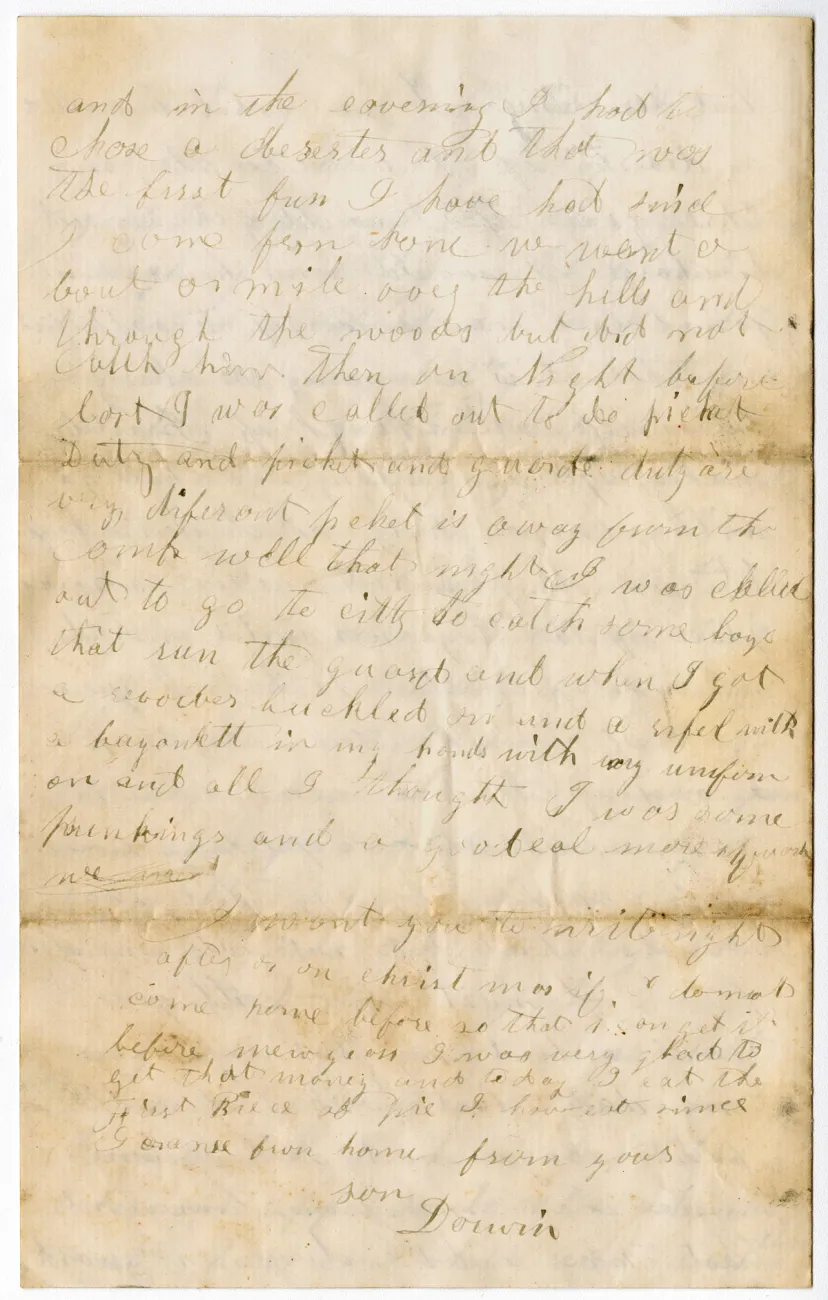 and in the eavening I had to
chase a deserter and that was
the first fun I have had sinc
I come from home we went a
bout a mile over the hills and
through the woods but did not
catch him then on Night before
last I was called out to do picket
Duty and picket and guarde duty are
very diferant picket is away from the
camp well that night I was called
out to go to citty to catch some boys
that run the guard and when I got
a buckled on and a rifel with
a bayonett in my hands with my uniform
on and all I thought I was some
punkings and a goodeal more
we
I want you to write right
after or on christ mas if I do not
come home before so that I can get it
before new years I was very glad to
get that money and to day I eat the
First Piece of Pie I have eat since
I come from home from your
son
Dorwin